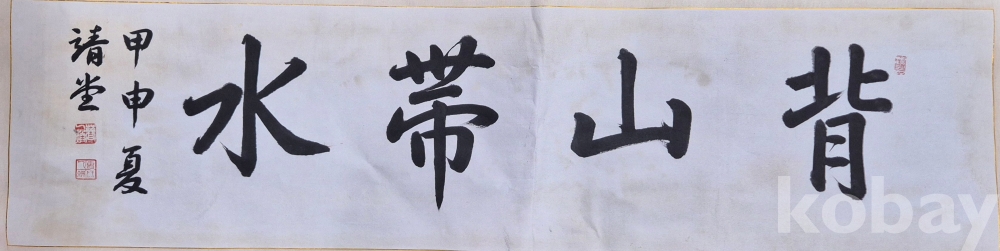 背山帶水
甲申夏
靖堂
kobay